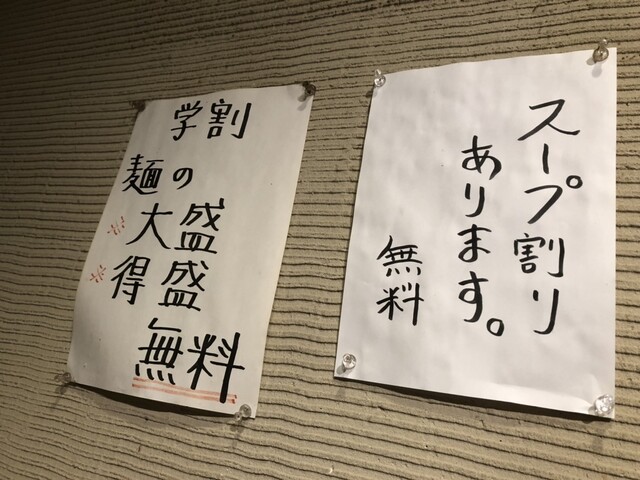 学割
麺の
※大盛
※得盛
無料
スープ割り
あります。
無料